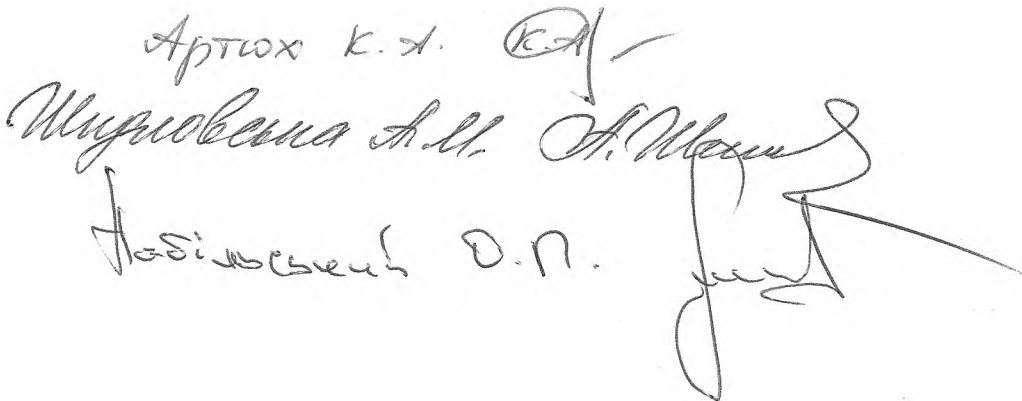 Артюх К.А. К.А
Шидловська А.М. А.Ш
Набільський О.П.